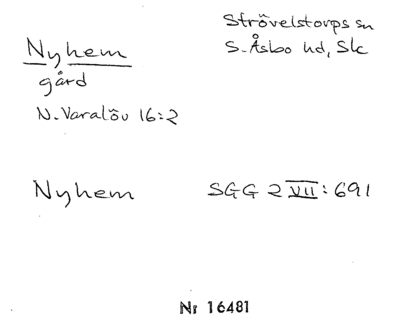 Nyhem
Strövelstorps sn
S. Åsbo hd, Sk
gård
N. Varalöv 16:2
Nyhem
SGG 2 VII: 691
Nr 16481